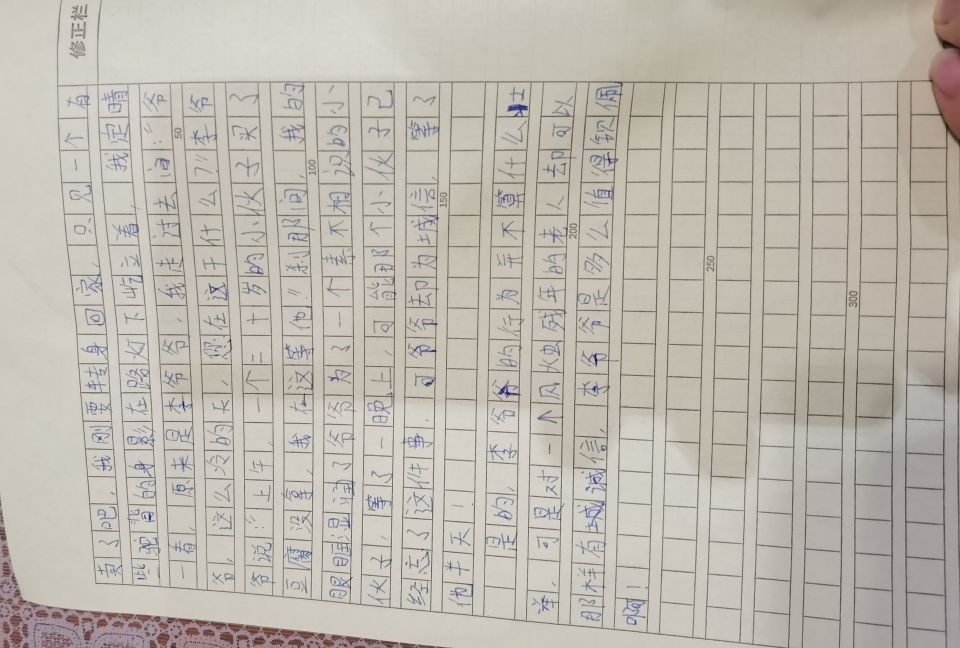 修正栏
卖了吧,我刚要转身回家,只见一个有
些驼背的身影在路灯下屹立着,我定睛
一看,原来是李爷爷,我走过去问:“爷
50
爷,这么冷的天,您在这干什么?”李爷
爷说:“上午,一个二十岁的小伙子买了
豆腐没拿,我在这等他!”刹那间,我的
100
眼眶湿润了爷爷为了一个素不相识的小
伙子,等了一晚上,可能那个小伙子已
经忘了这件事,可爷爷却为城信,等了
150
他半天!
是的,李爷爷的行为并不算什么壮
举,可是对一个风烛残年的老人却可以
200
那样有城诚信,李爷爷是多么值得钦佩
啊!
250
300